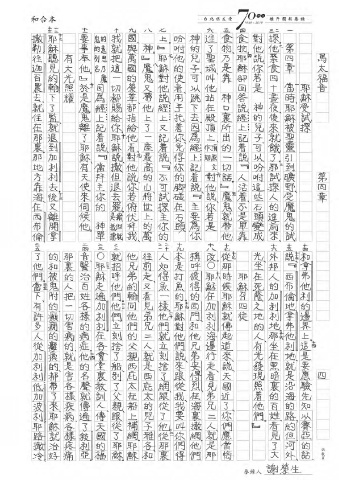 和合本
70
馬太福音　第四章　四
耶穌受試探
第四章　當時耶穌被聖靈引到曠野受魔鬼的試
探他禁食四十晝夜後來就餓了那試探人的進前來
對他說你若是　神的兒子可以吩咐這些石頭變成
食物耶穌卻回答說經上記著說『人活著不是單靠
食物乃是靠　神口裏所出的一切話』魔鬼就帶他
進了聖城叫他站在殿頂上對他說你若是
神的兒子可以跳下去因為經上記著說『主要為你
吩咐他的使者用手托著你免得你的腳碰在石頭
上』耶穌對他說經上又記著說『不可試探主你的
神』魔鬼又帶他上了一座最高的山將世上的萬
國與萬國的榮華都指給他看對他說你若俯伏拜我
我就把這一切都賜給你耶穌說撒但退去罷
因為經上記著說『當拜主你的　神單
要事奉他』於是魔鬼離了耶穌有天使來伺候他
有大光照耀
耶穌聽見約翰下了監就退到加利利去後又離開拿
撒勒往迦百農去就住在那裏那地方靠海在西布倫
和拿弗他利的邊界上這是要應驗先知以賽亞的話
說『西布倫地拿弗他利地就是沿海的路約但河外
外邦人的加利利地那坐在黑暗裏的百姓看見了大
光坐在死蔭之地的人有光發現照著他們』
耶穌召四徒
從那時候耶穌就傳起道來說天國近了你們應當悔
改耶穌在加利利海邊行走看見弟兄二人就是那
稱呼彼得的西門和他兄弟安得烈在海裏撒網他們
本是打魚的耶穌對他們說來跟從我我要叫你們得
人如得魚一樣他們就立刻捨了網跟從了他從那裏
往前走又看見弟兄二人就是西庇太的兒子雅各和
他兄弟約翰同他們的父親西庇太在船上補網耶穌
就招呼他們他們立刻捨了船別了父親跟從了耶穌
耶穌走遍加利利在各會堂裏教訓人傳天國的福
音醫治百姓各樣的病症他的名聲就傳遍了敘利亞
那裏的人把一切害病的就是害各樣疾病各樣疼痛
的和被鬼附的癲癇的癱瘓的都帶了來耶穌就治好
了他們當下有許多人從加利利低加波利耶路撒冷
抄錄人　謝榮生